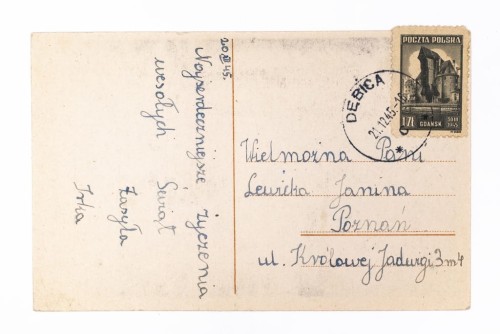 20 XII 45.
Najserdeczniejsze życzenia
wesołych Świąt
Zasyła
Irka
POCZTA POLSKA
1 ZŁ GDAŃSK 30 III 1945
DĘBICA
21.12.45
Wielmożna Pani
Lewicka Janina
Poznań
ul. Królowej Jadwigi 3 m 4